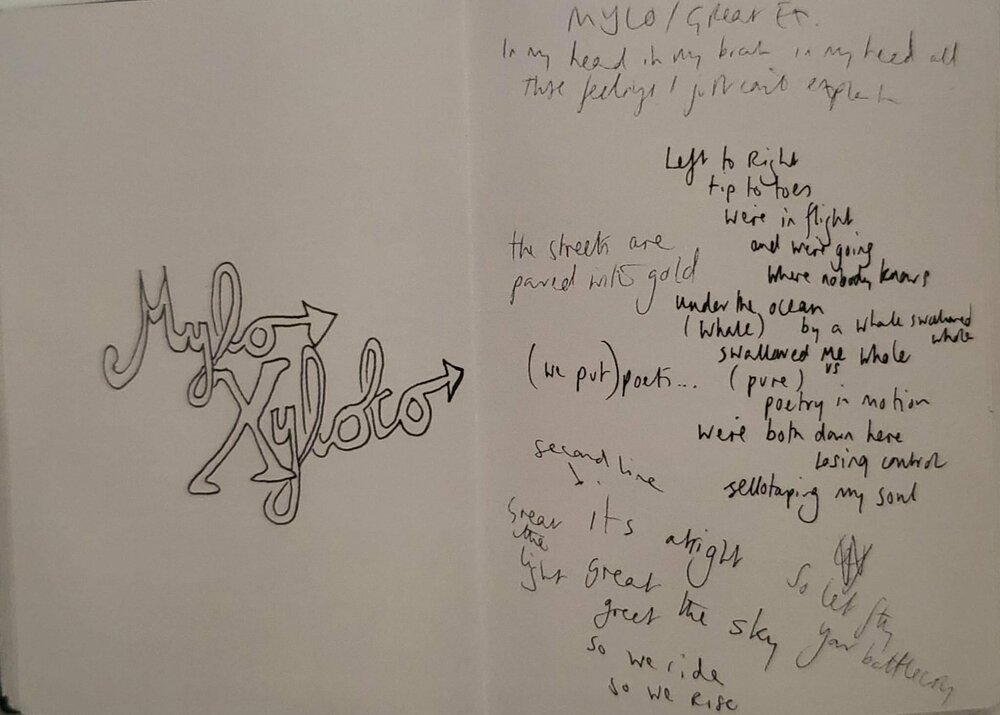 Mylo
Xyloto
MYLO / Great Ex.
In my head in my brain in my head all
these feelings I just can't explain
Left to Right
tip to toes
were in flight
and we're going
where nobody knows
the streets are
paved with gold
under the ocean
(whale) by a whale swallowed
whole
swallowed me whole
vs
(we put) poet... (pure)
poetry in motion
We're both down here
losing control
sellotaping my soul
second line
Great
the
light
It's alright
Great
greet the sky
so we ride
so we rise
So let fly
your battlecry